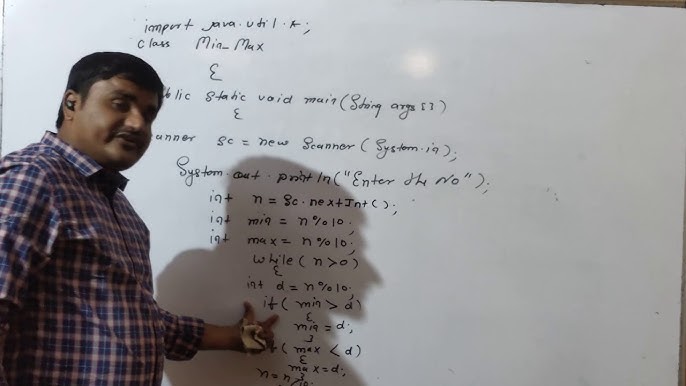 import java.util.*;
class Min_Max
{
blic static void main(String args[])
{
canner sc = new Scanner(System.in);
System.out.println("Enter the No");
int n = sc.nextInt();
int min = n%10;
int max = n%10;
while(n>0)
{
int d = n%10;
if( min > d)
{
min = d;
}
( max < d)
{
max = d;
}
n = n/10;